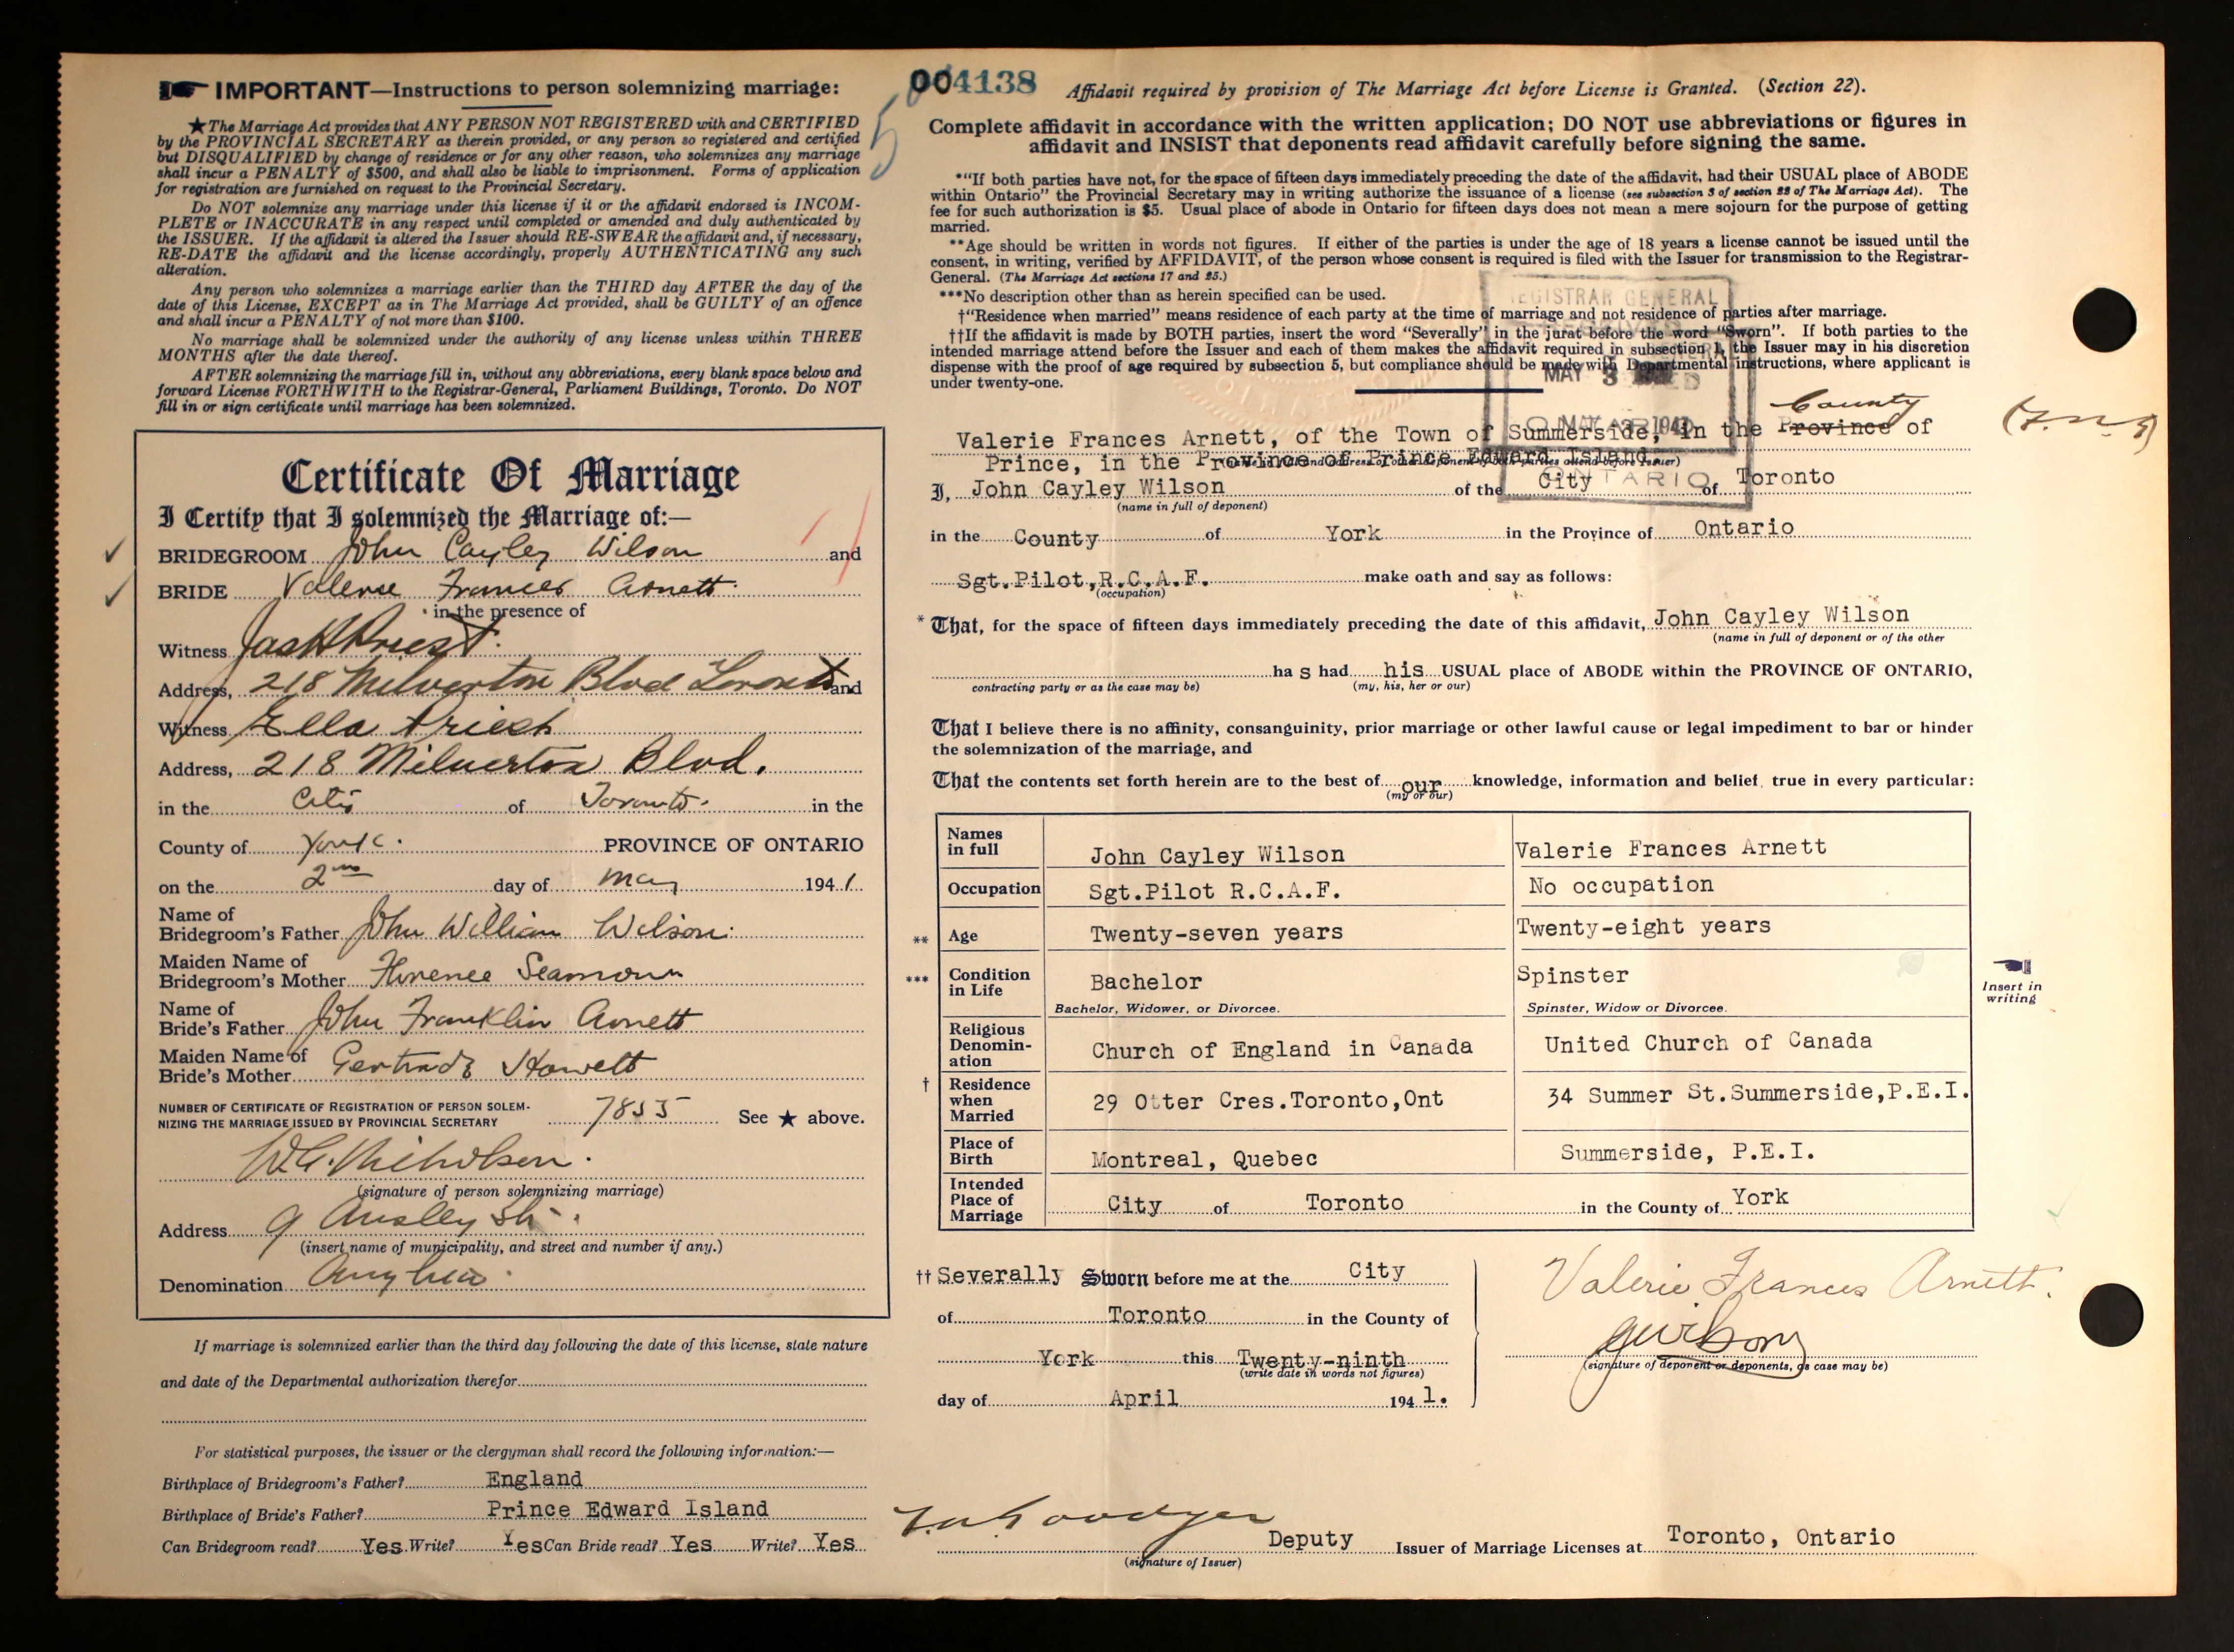 IMPORTANT—Instructions to person solemnizing marriage:
★The Marriage Act provides that ANY PERSON NOT REGISTERED with and CERTIFIED
by the PROVINCIAL SECRETARY as therein provided, or any person so registered and certified
but DISQUALIFIED by change of residence or for any other reason, who solemnizes any marriage
shall incur a PENALTY of $500, and shall also be liable to imprisonment. Forms of application
for registration are furnished on request to the Provincial Secretary.
Do NOT solemnize any marriage under this license if it or the affidavit endorsed is INCOM-
PLETE or INACCURATE in any respect until completed or amended and duly authenticated by
the ISSUER. If the affidavit is altered the Issuer should RE-SWEAR the affidavit and, if necessary,
RE-DATE the affidavit and the license accordingly, properly AUTHENTICATING any such
alteration.
Any person who solemnizes a marriage earlier than the THIRD day AFTER the day of the
date of this License, EXCEPT as in The Marriage Act provided, shall be GUILTY of an offence
and shall incur a PENALTY of not more than $100.
No marriage shall be solemnized under the authority of any license unless within THREE
MONTHS after the date thereof.
AFTER solemnizing the marriage fill in, without any abbreviations, every blank space below and
forward License FORTHWITH to the Registrar-General, Parliament Buildings, Toronto. Do NOT
fill in or sign certificate until marriage has been solemnized.
Certificate Of Marriage
I Certify that I solemnized the Marriage of:—
BRIDEGROOM John Cayley Wilson and
BRIDE Valerie Frances Arnett
in the presence of
Witness Jas H Priest
Address, 218 Milverton Blvd Toronto and
Witness Ella Priest
Address, 218 Milverton Blvd.
in the City of Toronto in the
County of York PROVINCE OF ONTARIO
on the 2nd day of May 1941
Name of
Bridegroom's Father John William Wilson
Maiden Name of
Bridegroom's Mother Florence Seamour
Name of
Bride's Father John Franklin Arnett
Maiden Name of
Bride's Mother Gertrude Howett
NUMBER OF CERTIFICATE OF REGISTRATION OF PERSON SOLEM-
NIZING THE MARRIAGE ISSUED BY PROVINCIAL SECRETARY 7855 See ★ above.
W.G. Nicholson
(signature of person solemnizing marriage)
Address 9 Ansley St.
(insert name of municipality, and street and number if any.)
Denomination Anglican
If marriage is solemnized earlier than the third day following the date of this license, state nature
and date of the Departmental authorization therefor
For statistical purposes, the issuer or the clergyman shall record the following information:—
Birthplace of Bridegroom's Father? England
Birthplace of Bride's Father? Prince Edward Island
Can Bridegroom read? Yes Write? Yes Can Bride read? Yes Write? Yes
004138
Affidavit required by provision of The Marriage Act before License is Granted. (Section 22).
Complete affidavit in accordance with the written application; DO NOT use abbreviations or figures in
affidavit and INSIST that deponents read affidavit carefully before signing the same.
*"If both parties have not, for the space of fifteen days immediately preceding the date of the affidavit, had their USUAL place of ABODE
within Ontario" the Provincial Secretary may in writing authorize the issuance of a license (see subsection 3 of section 22 of The Marriage Act). The
fee for such authorization is $5. Usual place of abode in Ontario for fifteen days does not mean a mere sojourn for the purpose of getting
married.
**Age should be written in words not figures. If either of the parties is under the age of 18 years a license cannot be issued until the
consent, in writing, verified by AFFIDAVIT, of the person whose consent is required is filed with the Issuer for transmission to the Registrar-
General. (The Marriage Act sections 17 and 25.)
***No description other than as herein specified can be used.
†"Residence when married" means residence of each party at the time of marriage and not residence of parties after marriage.
††If the affidavit is made by BOTH parties, insert the word "Severally" in the jurat before the word "Sworn". If both parties to the
intended marriage attend before the Issuer and each of them makes the affidavit required in subsection 1, the Issuer may in his discretion
dispense with the proof of age required by subsection 5, but compliance should be made with Departmental instructions, where applicant is
under twenty-one.
REGISTRAR GENERAL
MAY 3
ONTARIO
County
Valerie Frances Arnett, of the Town of Summerside, in the Province of
Prince, in the Province of Prince Edward Island
I, John Cayley Wilson of the City of Toronto
(name in full of deponent)
in the County of York in the Province of Ontario
Sgt.Pilot,R.C.A.F. make oath and say as follows:
(occupation)
*That, for the space of fifteen days immediately preceding the date of this affidavit, John Cayley Wilson
(name in full of deponent or of the other
ha s had his USUAL place of ABODE within the PROVINCE OF ONTARIO,
contracting party or as the case may be) (my, his, her or our)
That I believe there is no affinity, consanguinity, prior marriage or other lawful cause or legal impediment to bar or hinder
the solemnization of the marriage, and
That the contents set forth herein are to the best of our knowledge, information and belief true in every particular:
(my or our)
Names
in full John Cayley Wilson Valerie Frances Arnett
Occupation Sgt.Pilot R.C.A.F. No occupation
** Age Twenty-seven years Twenty-eight years
*** Condition
in Life Bachelor Spinster
Bachelor, Widower, or Divorcee. Spinster, Widow or Divorcee.
Insert in
writing
Religious
Denomin-
ation Church of England in Canada United Church of Canada
† Residence
when
Married 29 Otter Cres.Toronto,Ont 34 Summer St.Summerside,P.E.I.
Place of
Birth Montreal, Quebec Summerside, P.E.I.
Intended
Place of
Marriage City of Toronto in the County of York
††Severally Sworn before me at the City
of Toronto in the County of
York this Twenty-ninth
(write date in words not figures)
day of April 1941.
Valerie Frances Arnett.
JCWilson
(signature of deponent or deponents, as case may be)
Deputy Issuer of Marriage Licenses at Toronto, Ontario
(signature of Issuer)